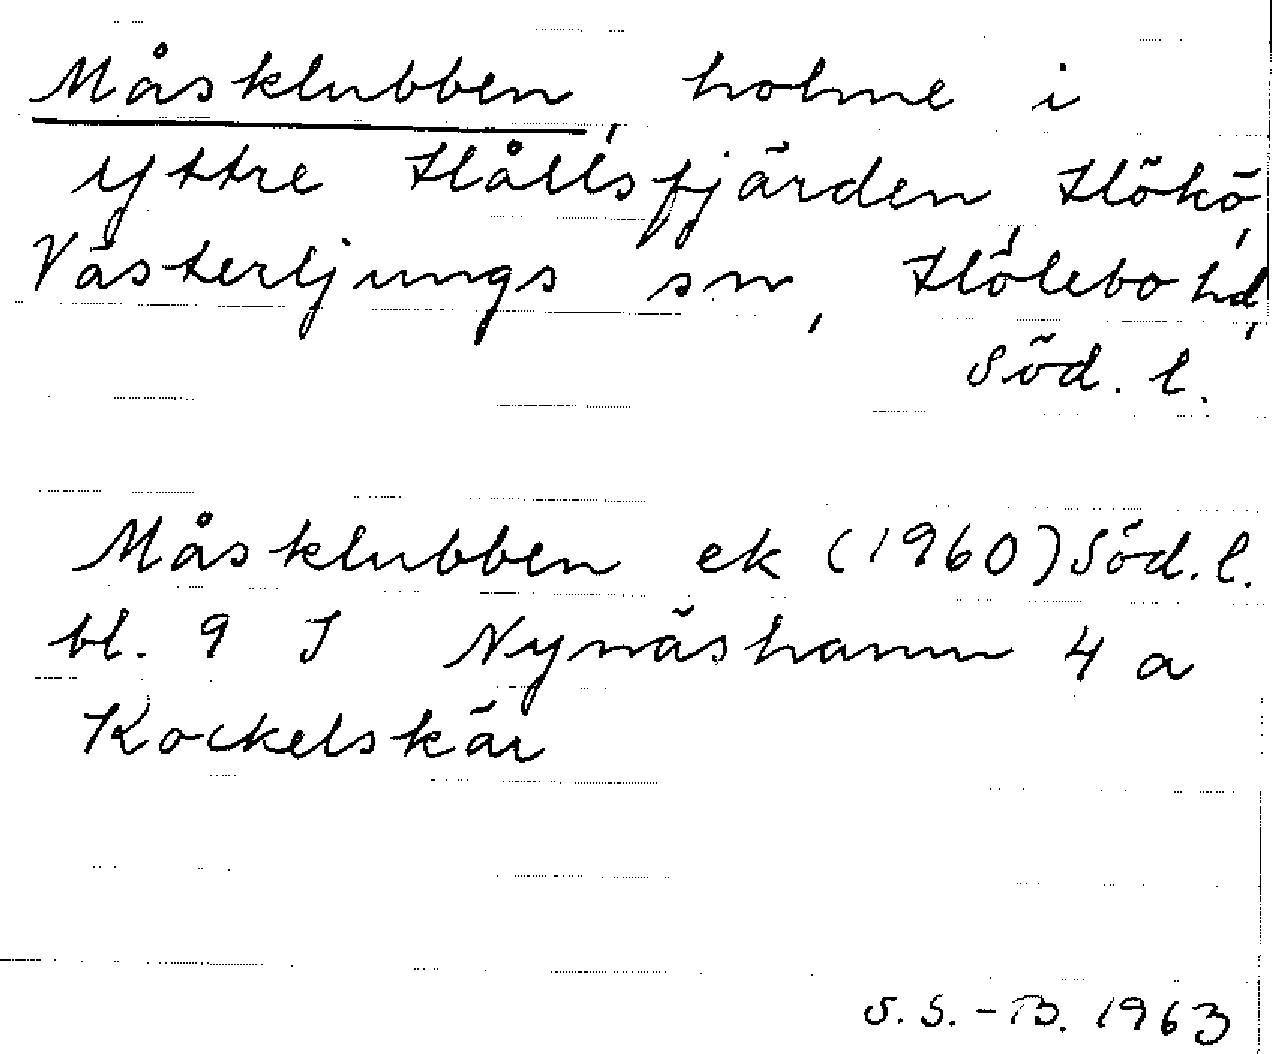 Måsklubben, holme i
yttre Hållsfjärden, Hökö,
Västerljungs sn, Hölebo hd,
Söd. l.
Måsklubben ek (1960) Söd. l.
bl. 9 J Nynäshamn 4 a
Kockelskär
S. S.-B. 1963